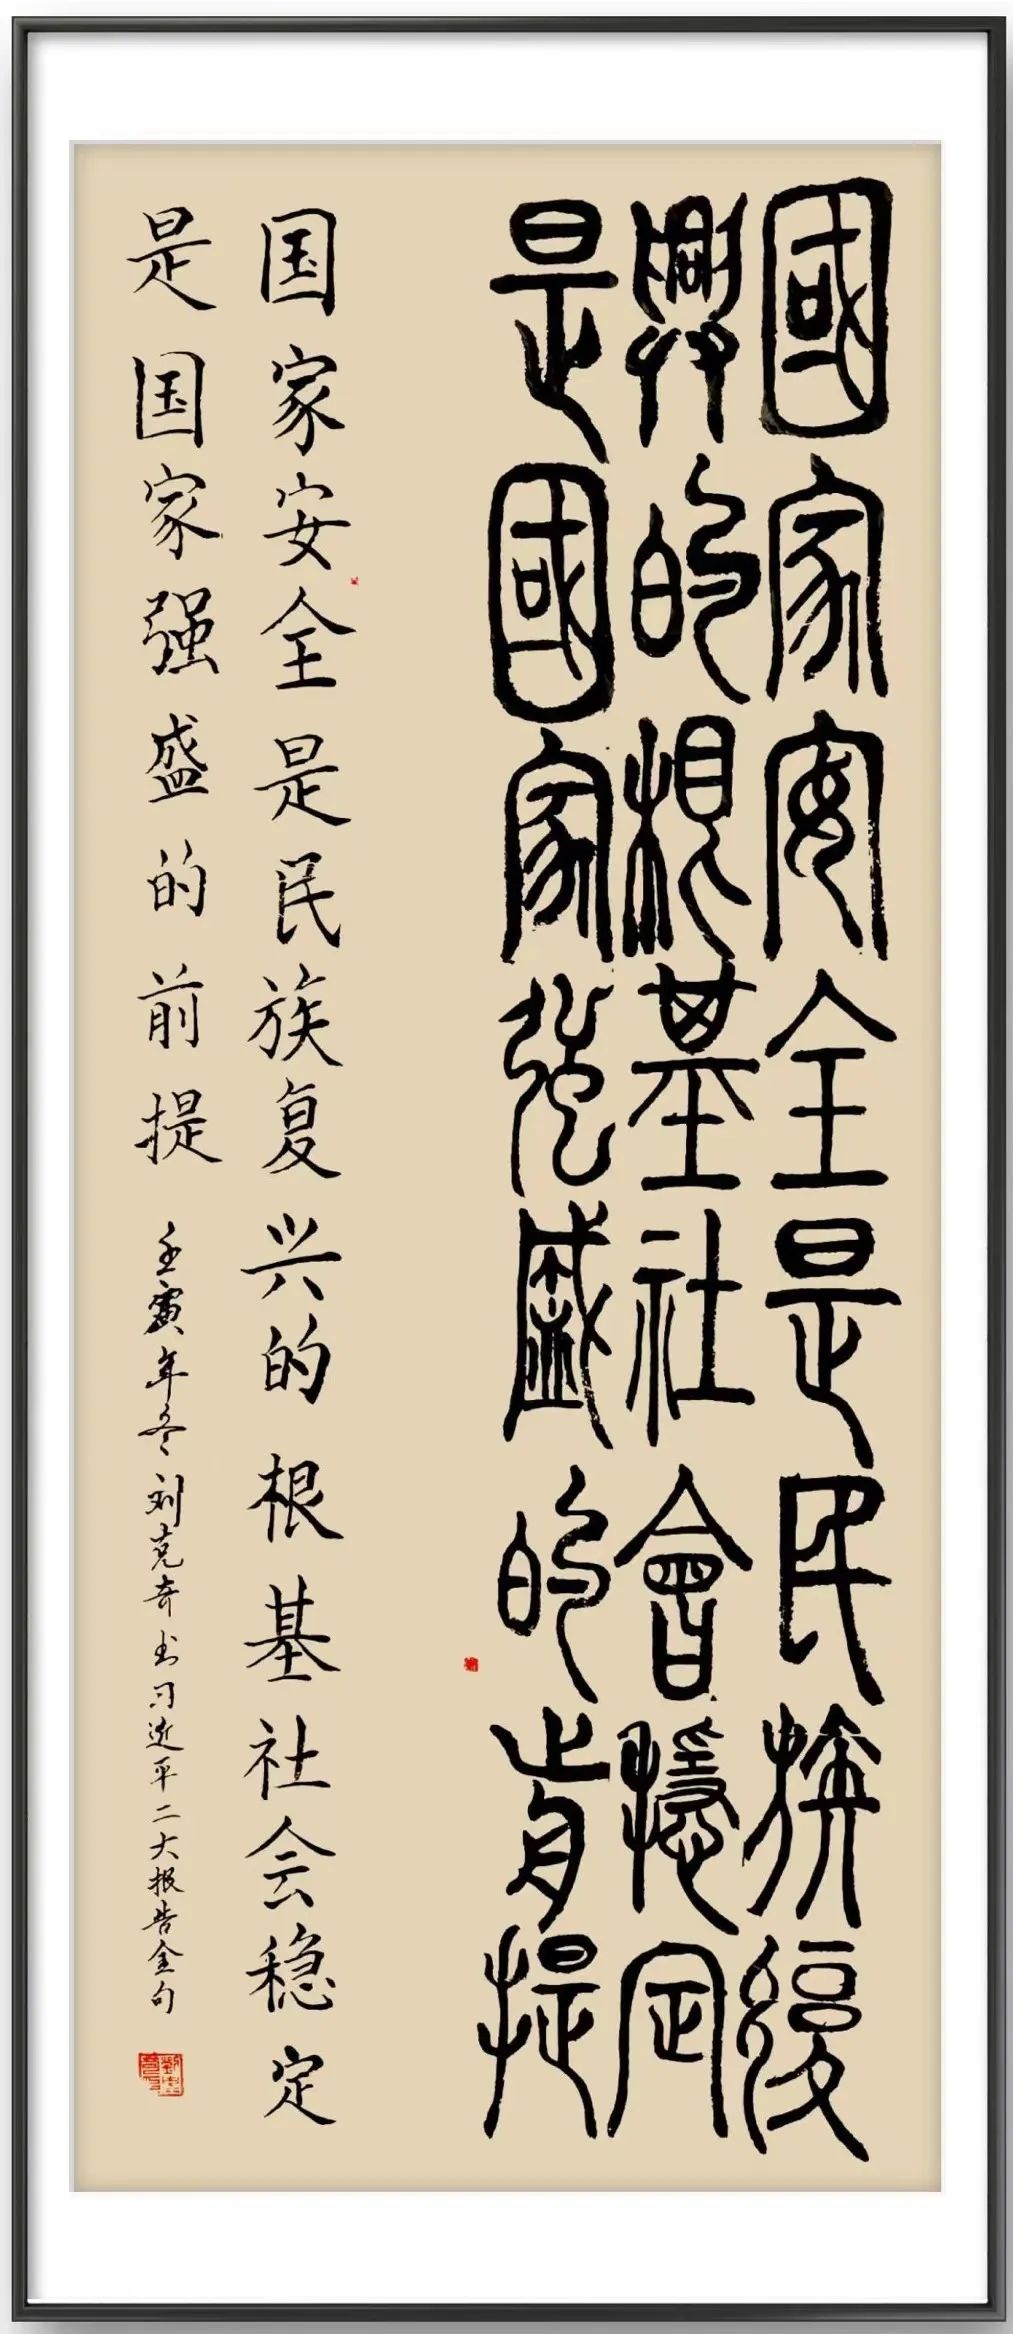 國家安全是民族復
興的根基社會穩定
是國家强盛的前提
国家安全是民族复兴的根基社会稳定
是国家强盛的前提
壬寅年冬刘克奇书习近平二大报告金句